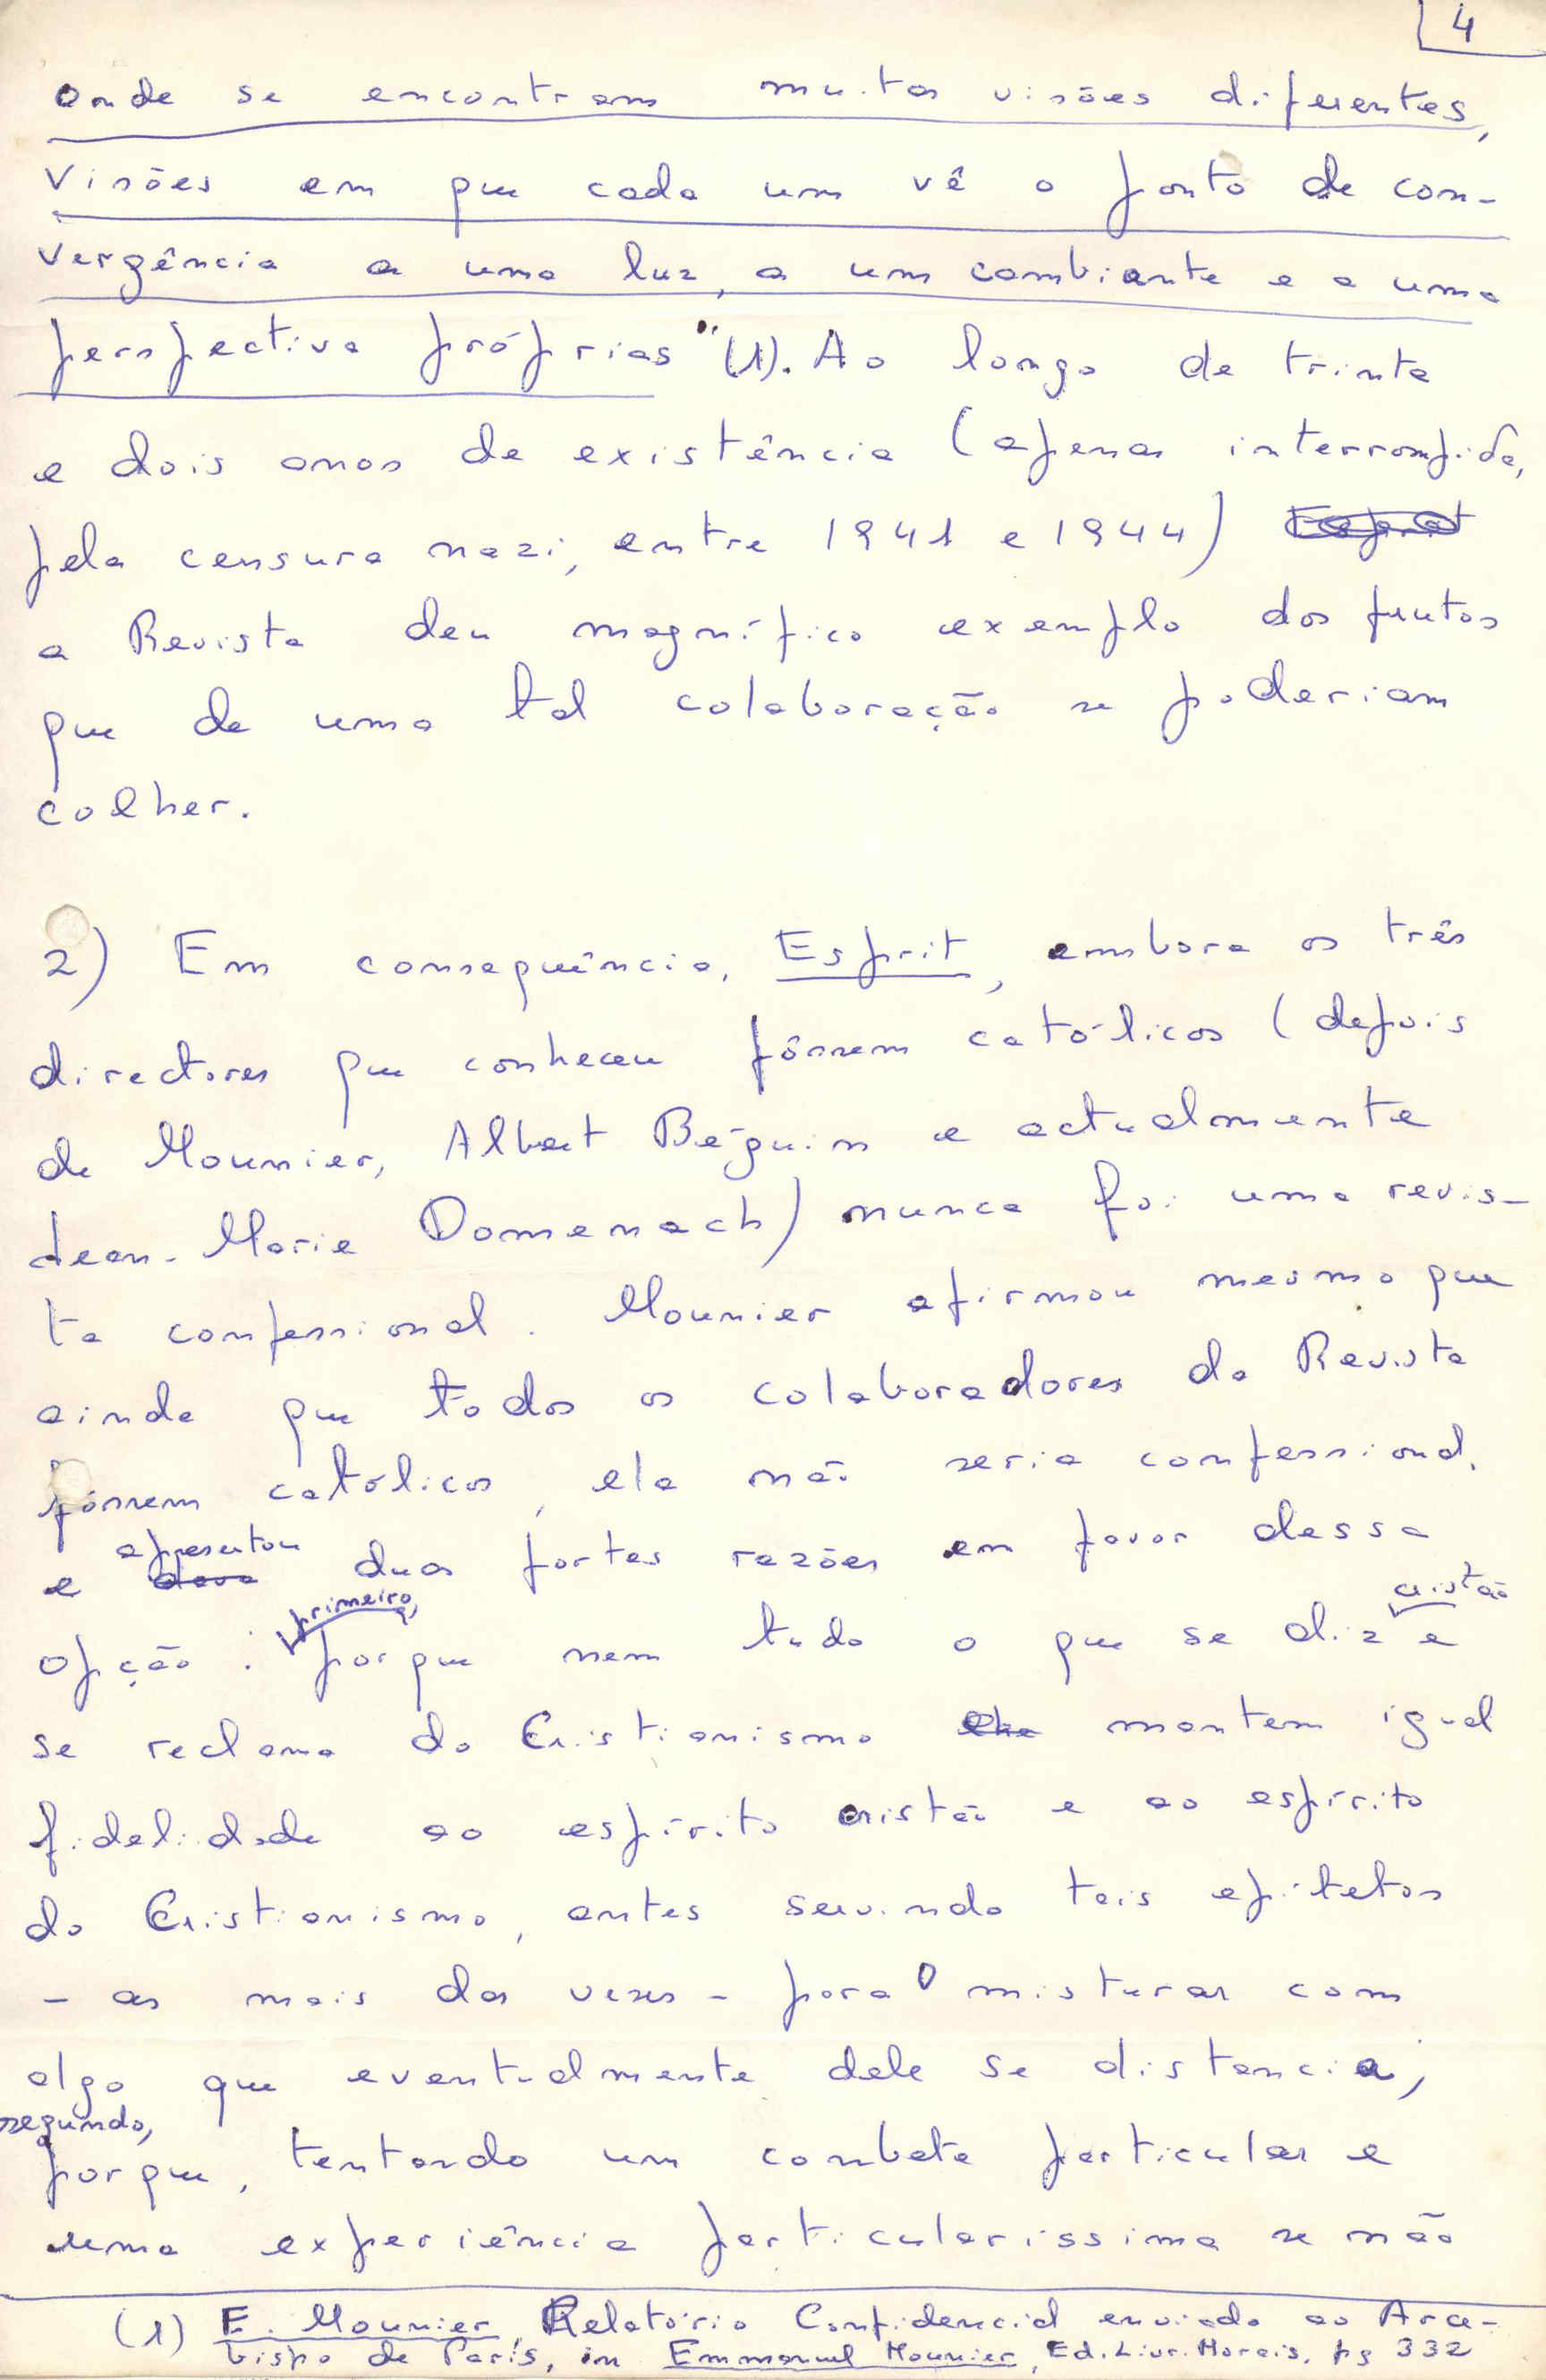 4
onde se encontram muitas visões diferentes,
visões em que cada um vê o ponto de con-
vergência a uma luz, a um cambiante e a uma
perspectiva próprias" (1). Ao longo de trinta
e dois anos de existência (apenas interrompida,
pela censura nazi, entre 1941 e 1944)
a Revista deu magnífico exemplo dos frutos
que de uma tal colaboração se poderiam
colher.
2) Em consequência, Esprit, embora os três
directores que conheceu fôssem católicos (depois
de Mounier, Albert Béguin e actualmente
Jean-Marie Domenach) nunca foi uma revis-
ta confessional. Mounier afirmou mesmo que
ainda que todos os colaboradores da Revista
fôssem católicos, ela não seria confessional.
e apresentou duas fortes razões em favor dessa
opção: primeiro, porque nem tudo o que se diz cristão e
se reclama do Cristianismo mantem igual
fidelidade ao espírito cristão e ao espírito
do Cristianismo, antes servindo tais epítetos
- as mais das vezes - para o misturar com
algo que eventualmente dele se distancia;
segundo,
porque, tentando um combate particular e
uma experiência particularissima se não
(1) E. Mounier, Relatório Confidencial enviado ao Arce-
bispo de Paris, in Emmanuel Mounier, Ed. Livr. Morais, pg 332